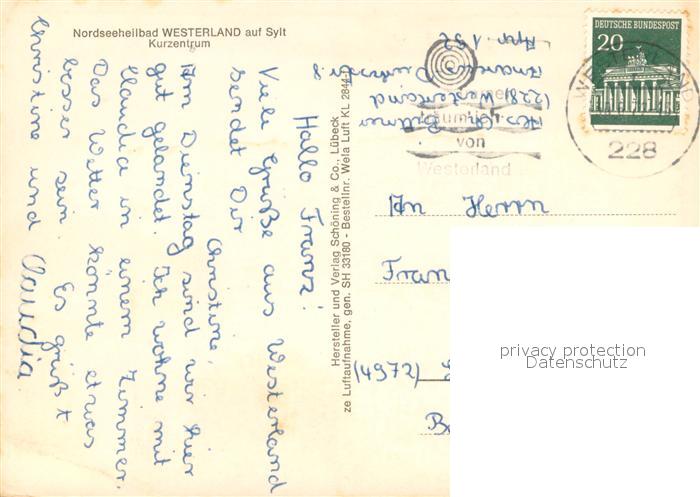 Nordseeheilbad WESTERLAND auf Sylt
Kurzentrum
Hallo Franz!
Viele Grüße aus Westerland
sendet Dir
Christine,
Am Dienstag sind wir hier
gut gelandet. Ich wohne mit
Claudia in einem Zimmer.
Das Wetter könnte etwas
besser sein. Es grüßt
Christine und Claudia
Hersteller und Verlag Schöning & Co., Lübeck
ze Luftaufnahme, gen. SH 33180 - Bestellnr. Wela Luft KL 2844
2281 Westerland
App. 132
von
Westerland
DEUTSCHE BUNDESPOST
20
228
An Herrn
Fran
(4972)
privacy protection
Datenschutz